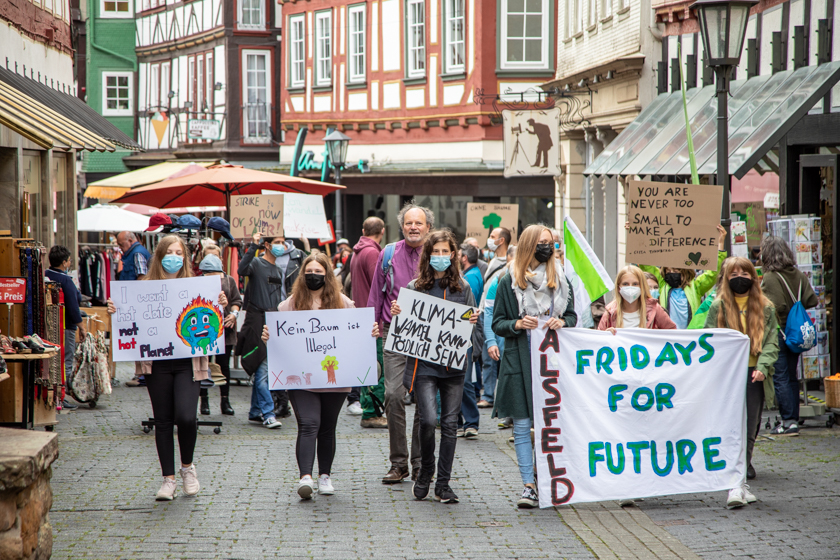 STRIKE
NOW
OR SWIM
YOU ARE
NEVER TOO
SMALL TO
MAKE A
DIFFERENCE
I want a
hot date
not a
hot Planet
Kein Baum ist
Illegal
KLIMA-
WANDEL KANN
TÖDLICH SEIN
ALSFELD
FRIDAYS
FOR
FUTURE
Preis